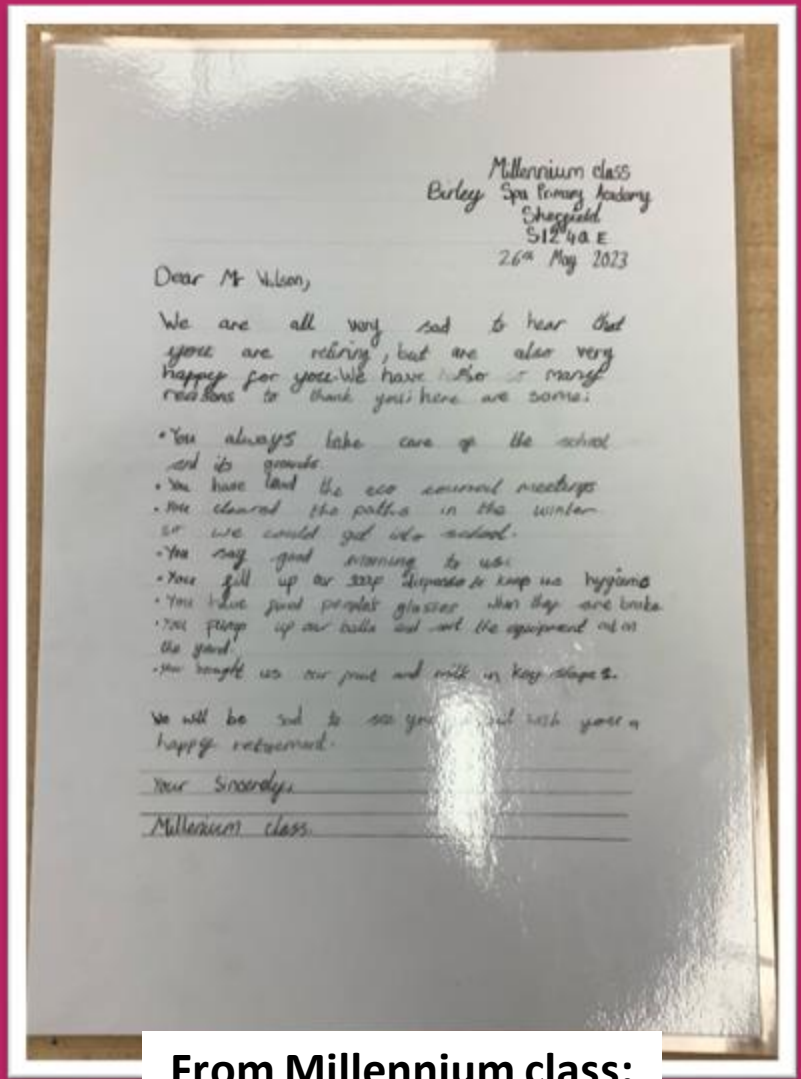 Millennium class
Birley Spa Primary Academy
Sheffield
S12 4QE
26th May 2023
Dear Mr Wilson,
We are all very sad to hear that
you are retiring, but are also very
happy for you. We have so many
reasons to thank you; here are some:
• You always take care of the school
and its grounds.
• You have lead the eco council meetings
• You cleared the paths in the winter
so we could get into school.
• You say good morning to us.
• You fill up our soap to keep us
• You have people's glasses when they are broke
• You pump up our balls and the equipment out on
the yard.
• You bought us our fruit and milk in key stage 1.
We will be sad to see you but wish you a
happy retirement.
Your Sincerely,
Millenium class.
From Millennium class: